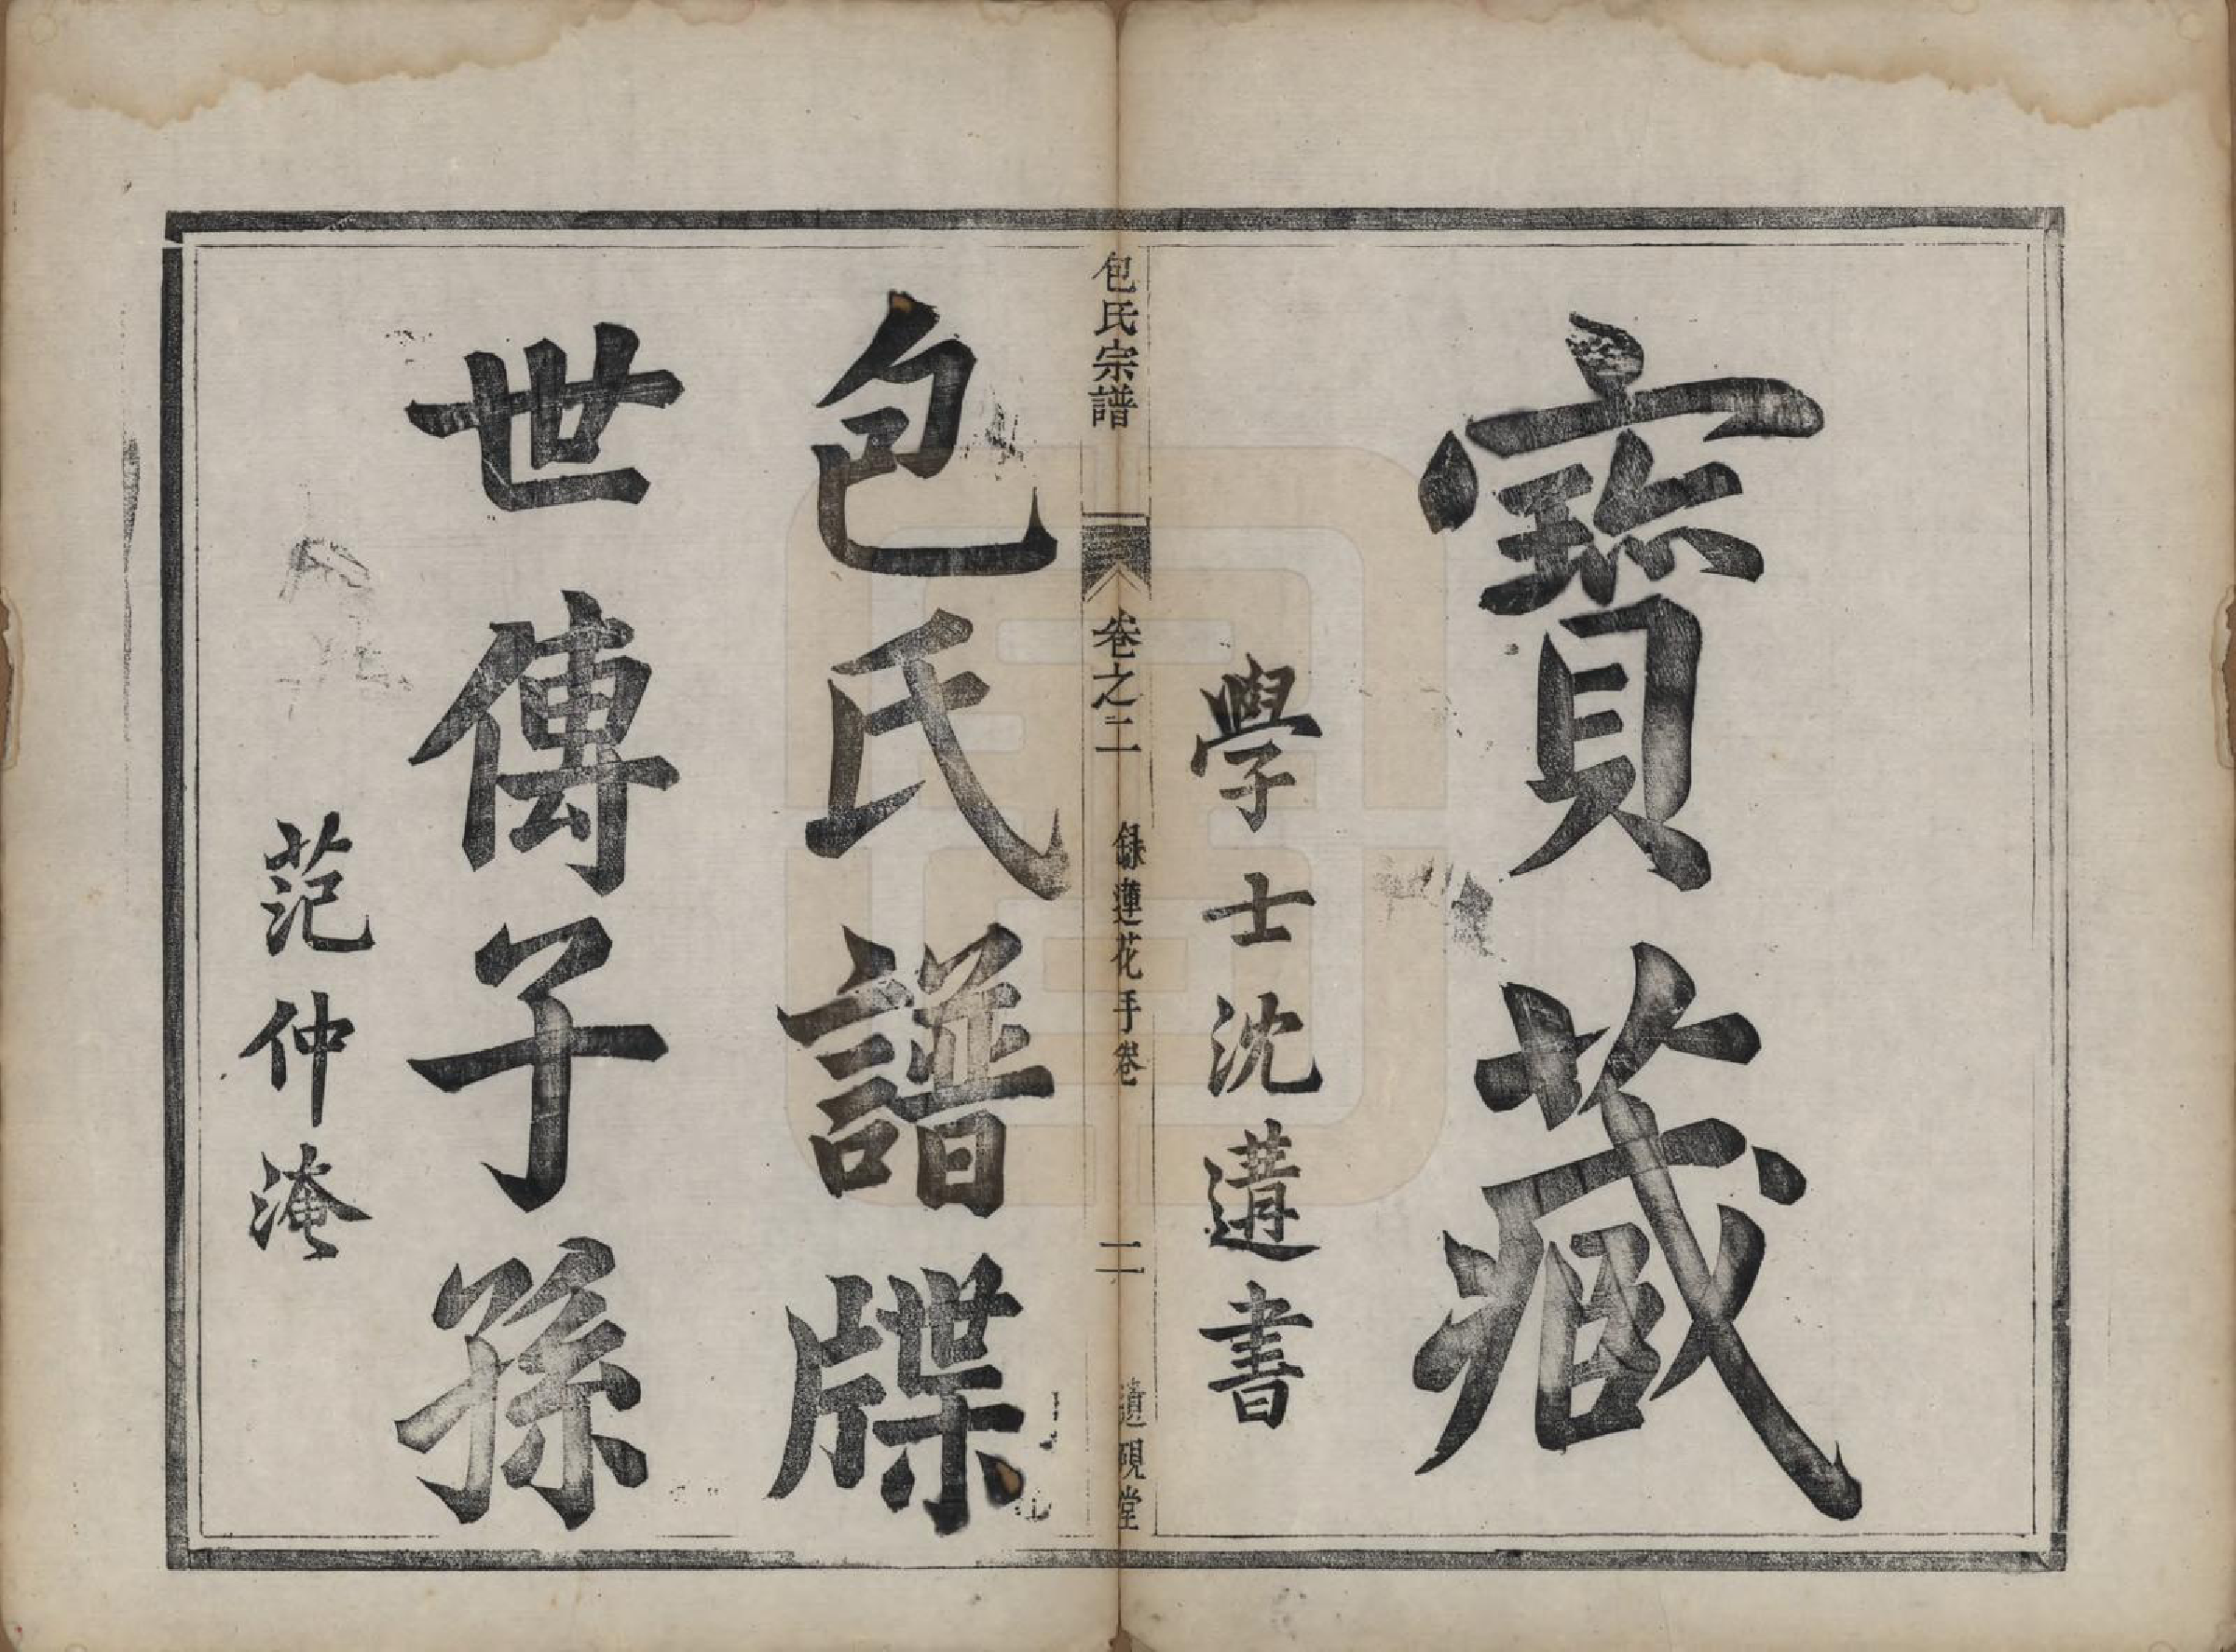 寳藏
學士沈遘書
包氏宗譜
卷之二
錄蓮花手卷
二
遺硯堂
包氏譜牒
世傳子孫
范仲淹